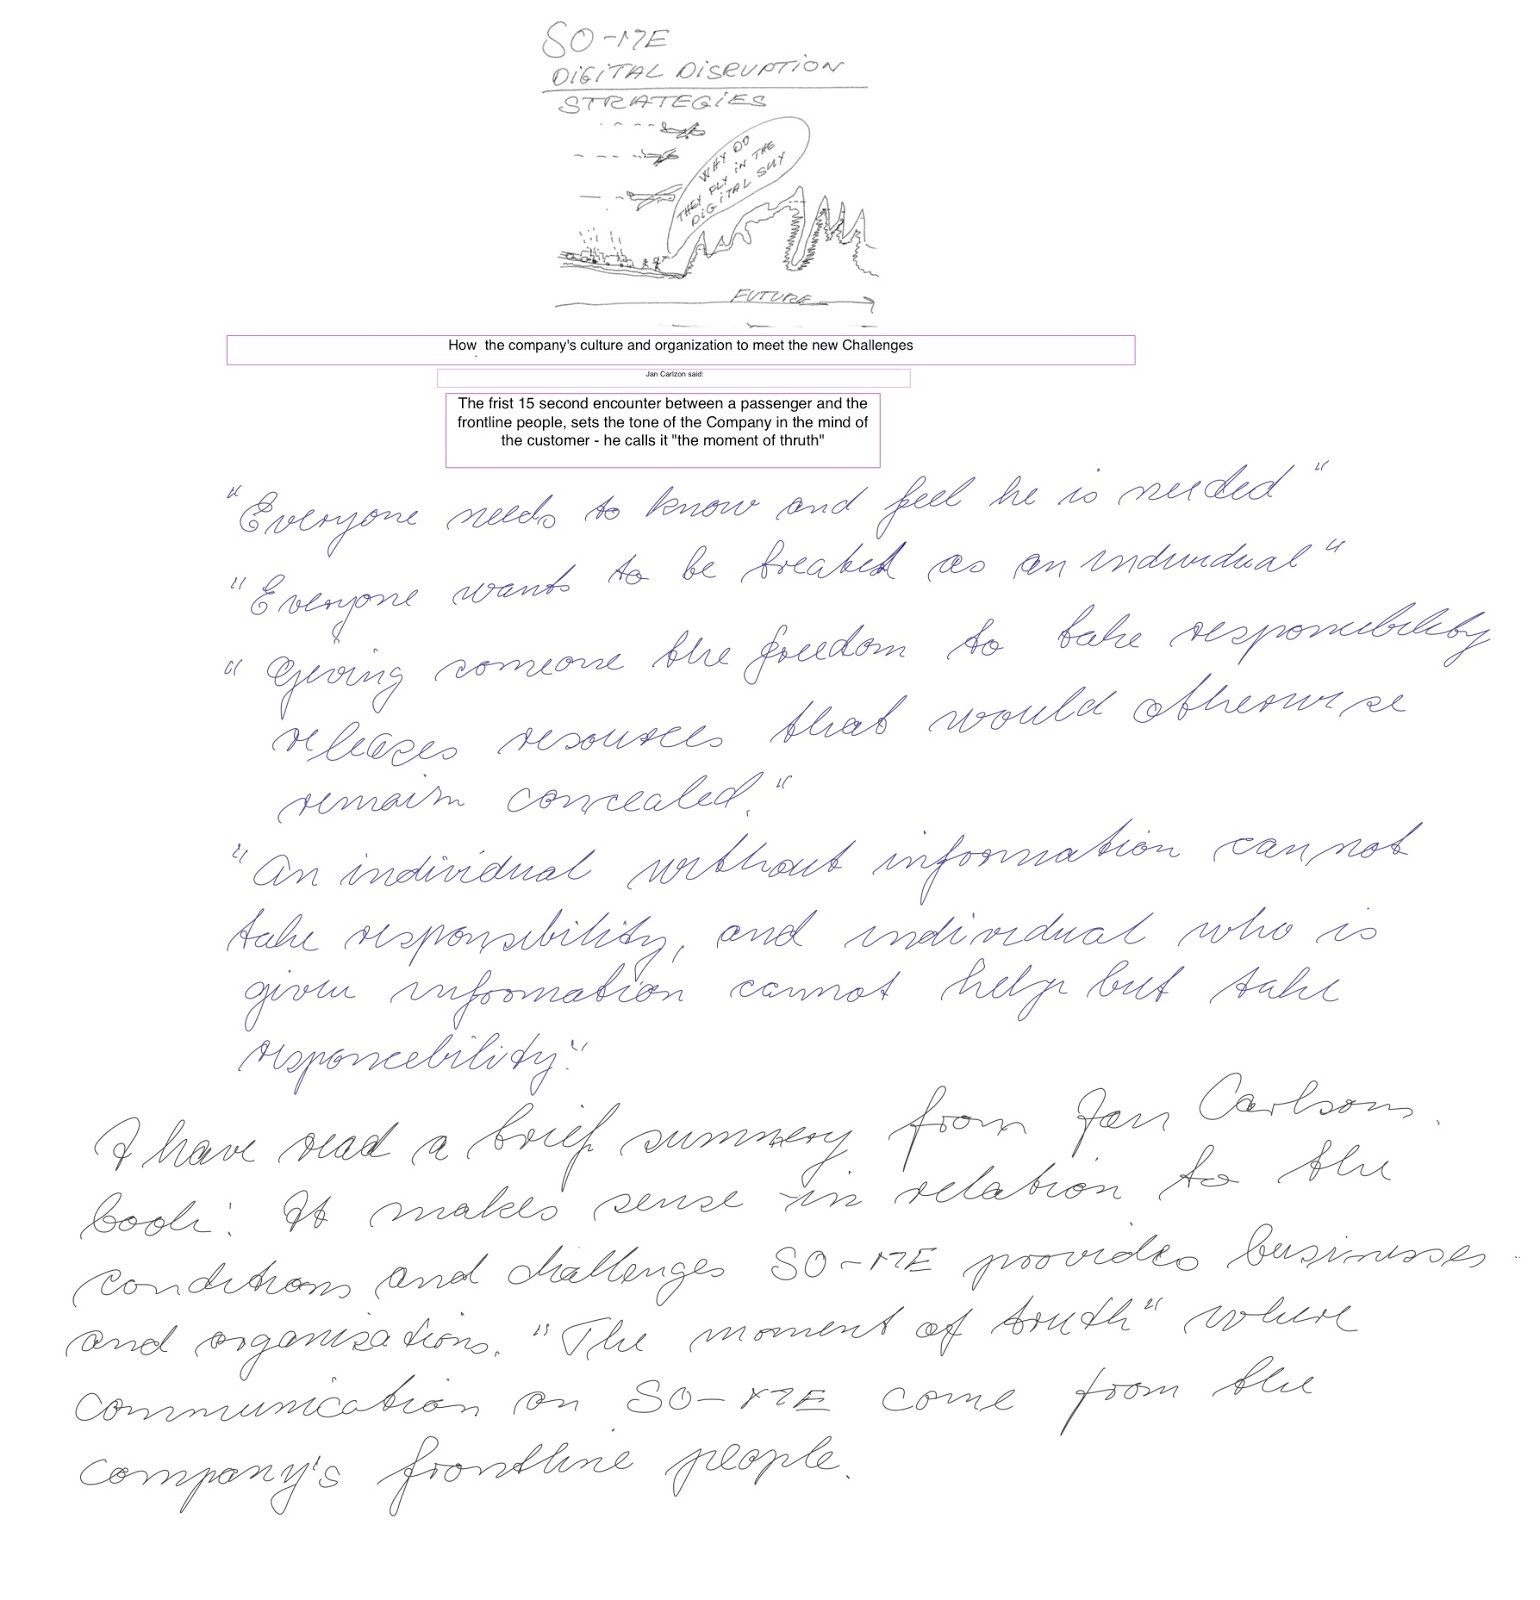 SO-ME
DIGITAL DISRUPTION
STRATEGIES
WHY DO
THEY FLY IN THE
DIGITAL SKY
FUTURE
How the company's culture and organization to meet the new Challenges
Jan Carlzon said:
The frist 15 second encounter between a passenger and the
frontline people, sets the tone of the Company in the mind of
the customer - he calls it "the moment of thruth"
"Everyone needs to know and feel he is needed"
"Everyone wants to be treated as an individual"
"Giving someone the freedom to take responsibility
releases resources that would otherwise
remain concealed."
"An individual without information cannot
take responsibility, and individual who is
given information cannot help but take
responcebility."
I have read a brief summery from Jan Carlson.
book: It makes sense in relation to the
conditions and challenges SO-ME provides businesses
and organisations. "The moment of truth" where
communication on SO-ME come from the
company's frontline people.